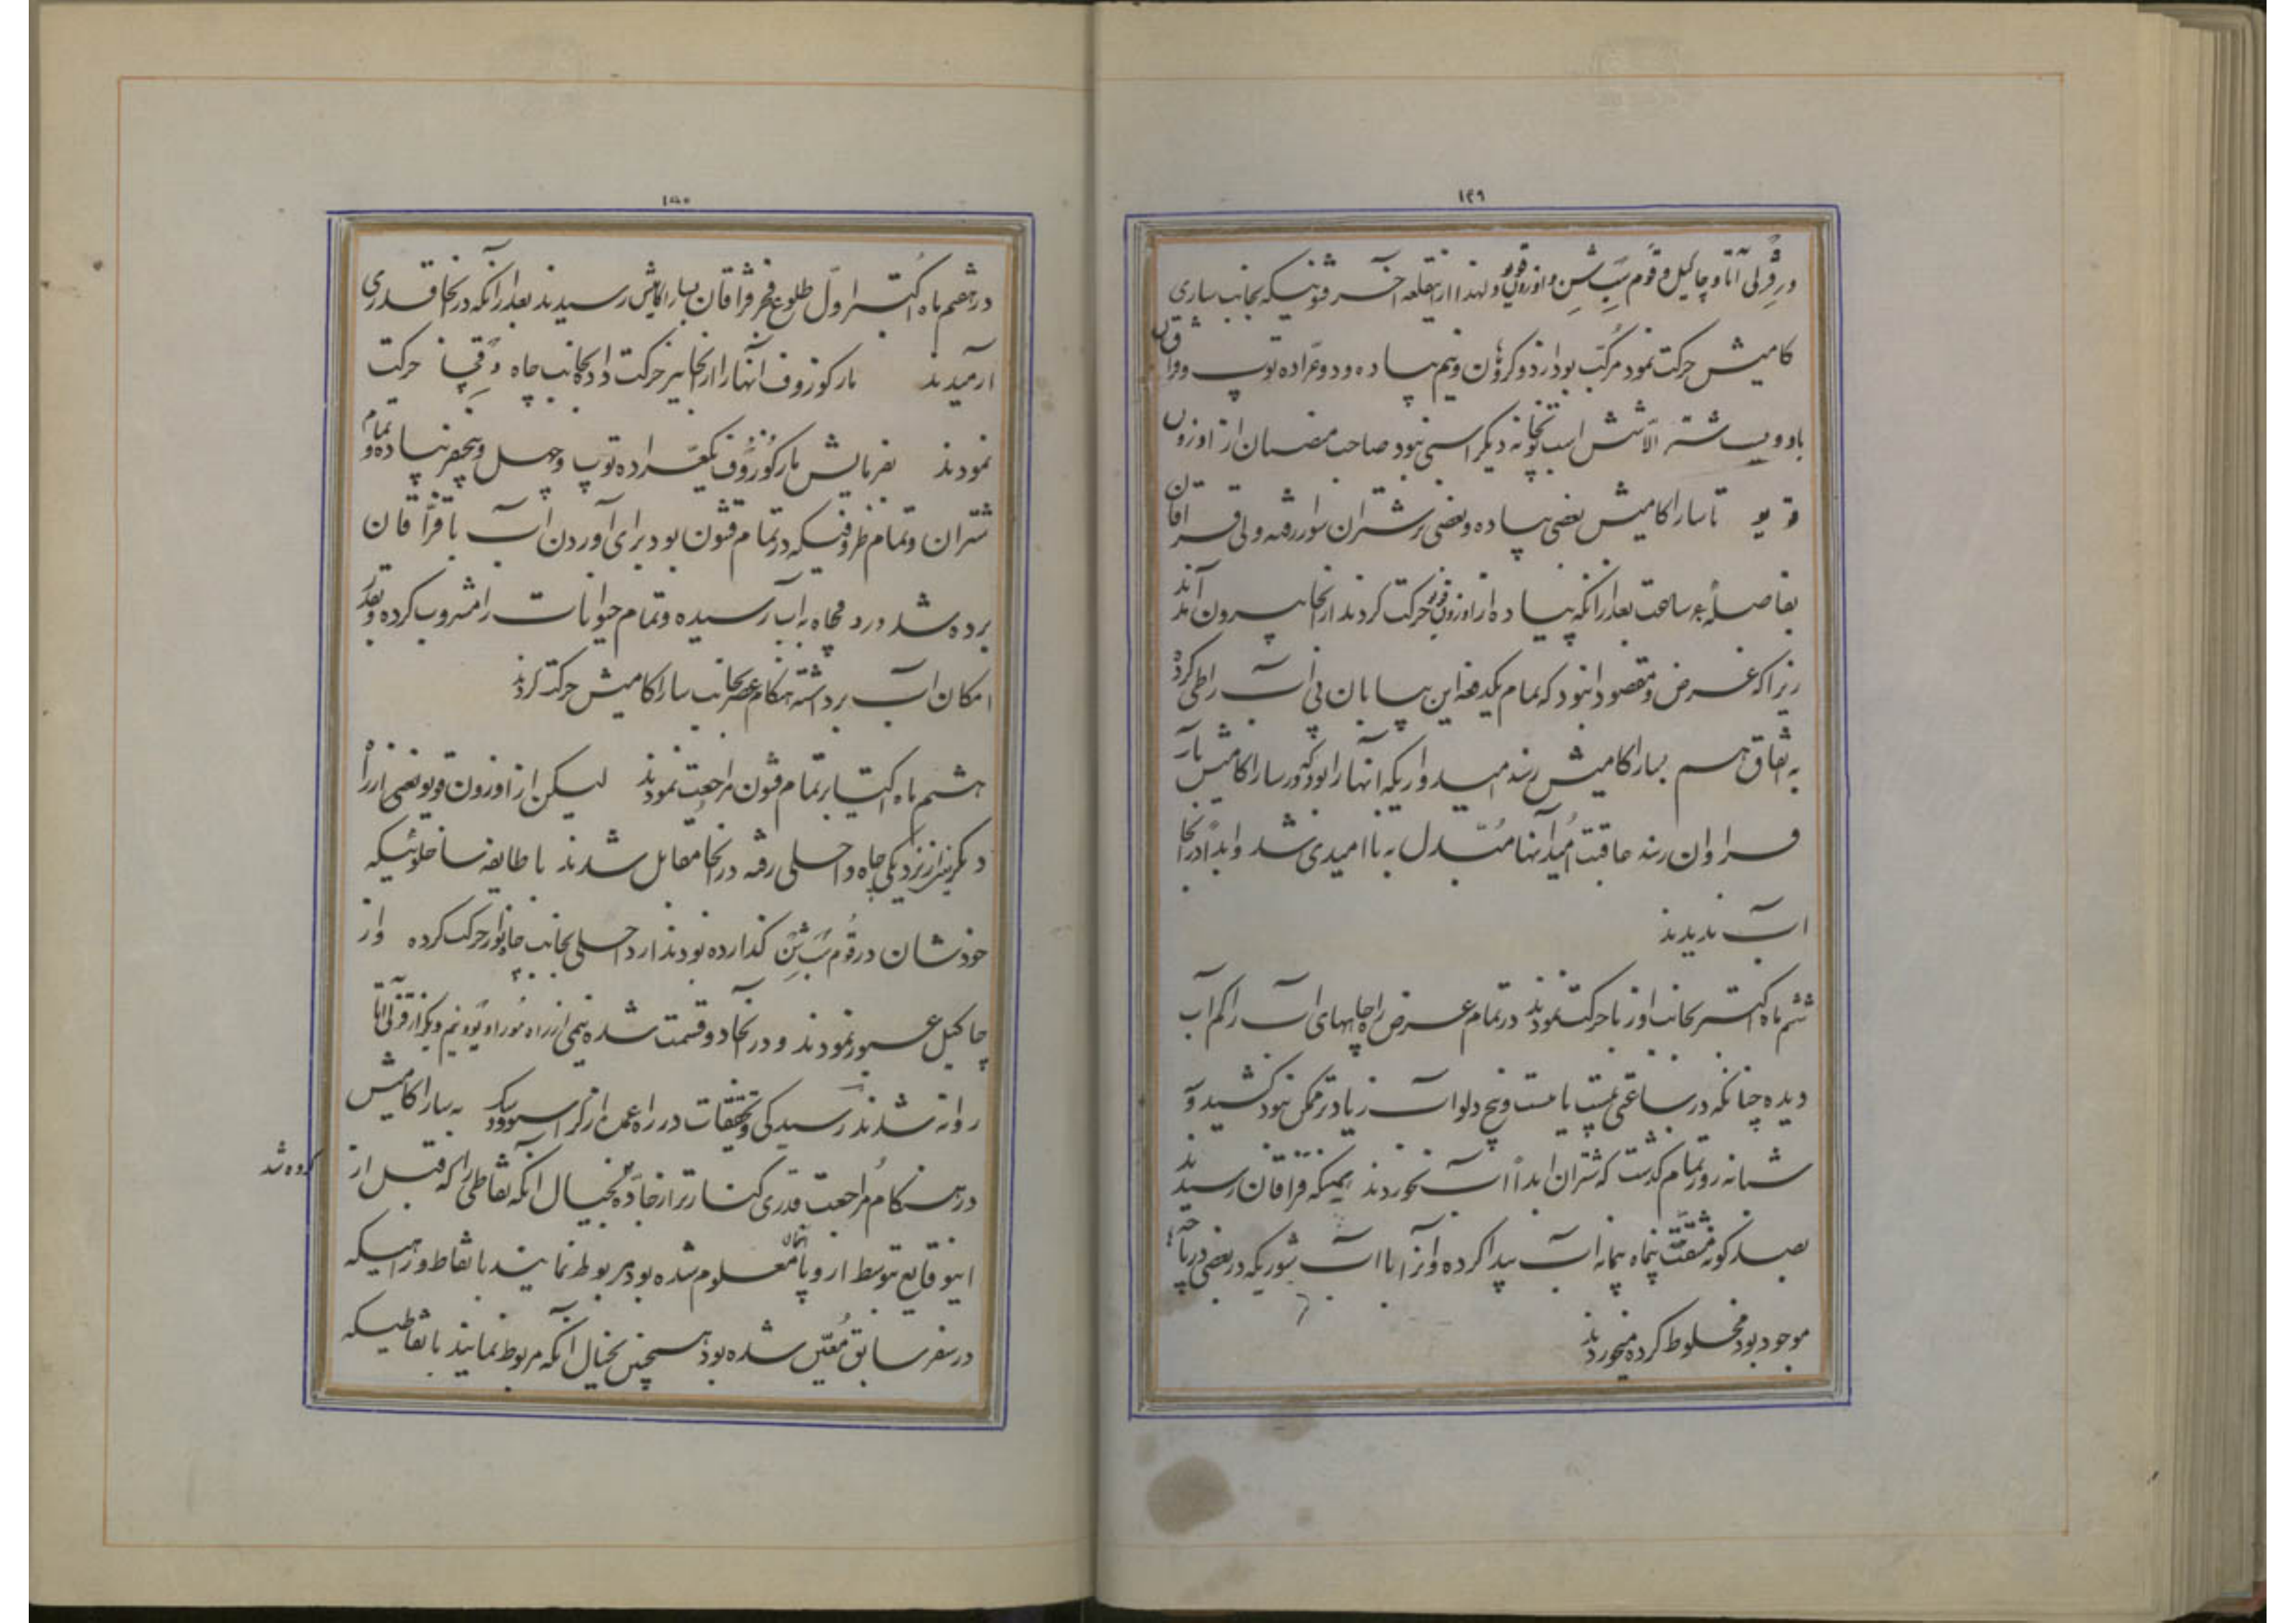 ۱۴۹
در قزل آتا و چاکیل و قوم سبشن و اوزون قویو ولهذا از اینقلعه آخر قشونیکه بجانب ساری
کامیش حرکت نمود مرکب بود از دو گروهان و نیم پیاده و دو عراده توپ و قزاقان
با دویست شتر الا شش اسب توپخانه دیگر اسبی نبود صاحب منصبان از اوزون
قویو تا سارا کامیش بعضی پیاده و بعضی بر شتران سوار رفته ولی قزاقان
بفاصله ساعت بعد از آنکه پیاده از اوزون قویو حرکت کردند از آنجا بیرون آمدند
زیرا که غرض و مقصود این بود که تمام یکدفعه این بیابان بی آب را طی کرده
به اتفاق هم بسارا کامیش رسند امیدواریکه آنها را بود که در سارا کامیش بآب
فراوان رسند عاقبت امید آنها مبدل به ناامیدی شد و ابداً در آنجا
آب ندیدند
ششم ماه اکتبر بجانب اوزبا حرکت نمودند در تمام عرض راه چاههای آب را کم آب
دیده چنانکه در ساعتی بیست یا بیست و پنج دلو آب زیادتر ممکن نبود کشید و
شبانه روز تمام گذشت که شتران ابداً آب نخوردند همینکه قزاقان رسیدند
بصد گونه مشقت پنجاه پیمانه آب پیدا کرده و آنرا با آب شوریکه در بعضی دریاچه‌ها
موجود بود مخلوط کرده میخوردند
۱۵۰
در هفتم ماه اکتبر اول طلوع فجر قزاقان بسارا کامیش رسیدند بعد از آنکه در آنجا قدری
آرمیدند مارکوزوف آنها را از آنجا نیز حرکت داد بجانب چاه حرکت
نمودند بفرمایش مارکوزوف یکعراده توپ و چهل و پنجنفر پیاده و تمام
شتران و تمام ظروفیکه در تمام قشون بود برای آوردن آب با قزاقان
برده شد در دمچاه به آب رسیده و تمام حیوانات را مشروب کرده و بقدر
امکان آب برداشته هنگام عصر بجانب سارا کامیش حرکت کردند
هشتم ماه اکتبر تمام قشون مراجعت نمودند لیکن از اوزون قویو بعضی از راه
دیگر یعنی از نزدیکی چاه واحسلی رفته در آنجا مقابل شدند با طایفه ساخلوئیکه
خودشان در قوم سبشن گذارده بودند از داحسلی بجانب چاه بورا حرکت کرده و از
چاکیل عبور نمودند و در آنجا دو قسمت شده نیمی از راه بورا و یوو نیم دیگر از قزل آتا
روانه شدند رسیدگی و تحقیقات در راه عمل از گراسنوودسک به سارا کامیش
کرده شد
در هنگام مراجعت قدری کنارتر از جاده بخیال آنکه نقاطی را که قبل از
اینوقایع توسط اروپائیان معلوم شده بود مربوط نمایند با نقاط و راهیکه
در سفر سابق معین شده بود همچنین بخیال آنکه مربوط نمایند با نقاطیکه